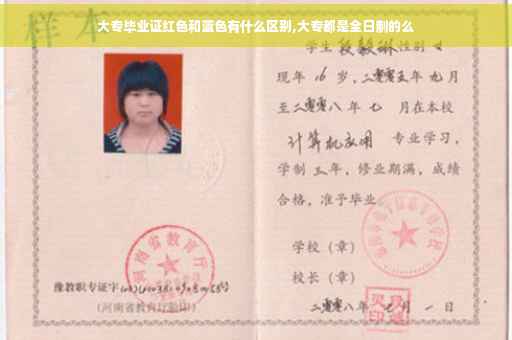 大专毕业证红色和蓝色有什么区别,大专都是全日制的么
样本
学生 段 性别 女
现年 16 岁，二零零五年 九 月
至二零零八年 七 月在本校
计算机应用 专业学习，
学制 三 年，修业期满，成绩
合格，准予毕业
学校（章）
校长（章）
二零零八年 七 月 一 日
河南省教育厅
豫教职专证字
（河南省教育厅验印）